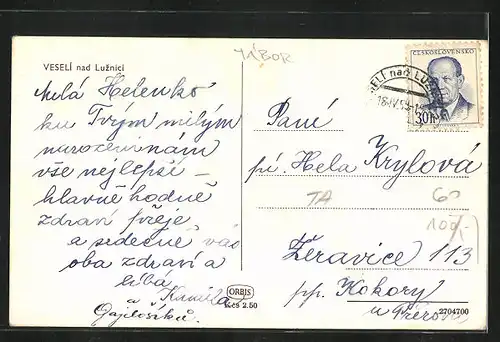 VESELÍ nad Lužnicí
TÁBOR
ČESKOSLOVENSKO
30h
VESELÍ nad LUŽ
18.IV.
Milá Helenko
ku Tvým milým
narozeninám
vše nejlepší –
hlavně hodně
zdraví přeje
a srdečně vás
oba zdraví a
líbá
Kamila
a
Paní
pí. Hela Krylová
TA
60
100/-
Žeravice 113
pp. Kokory
u Přerova
ORBIS
Kčs 2.50
2704700